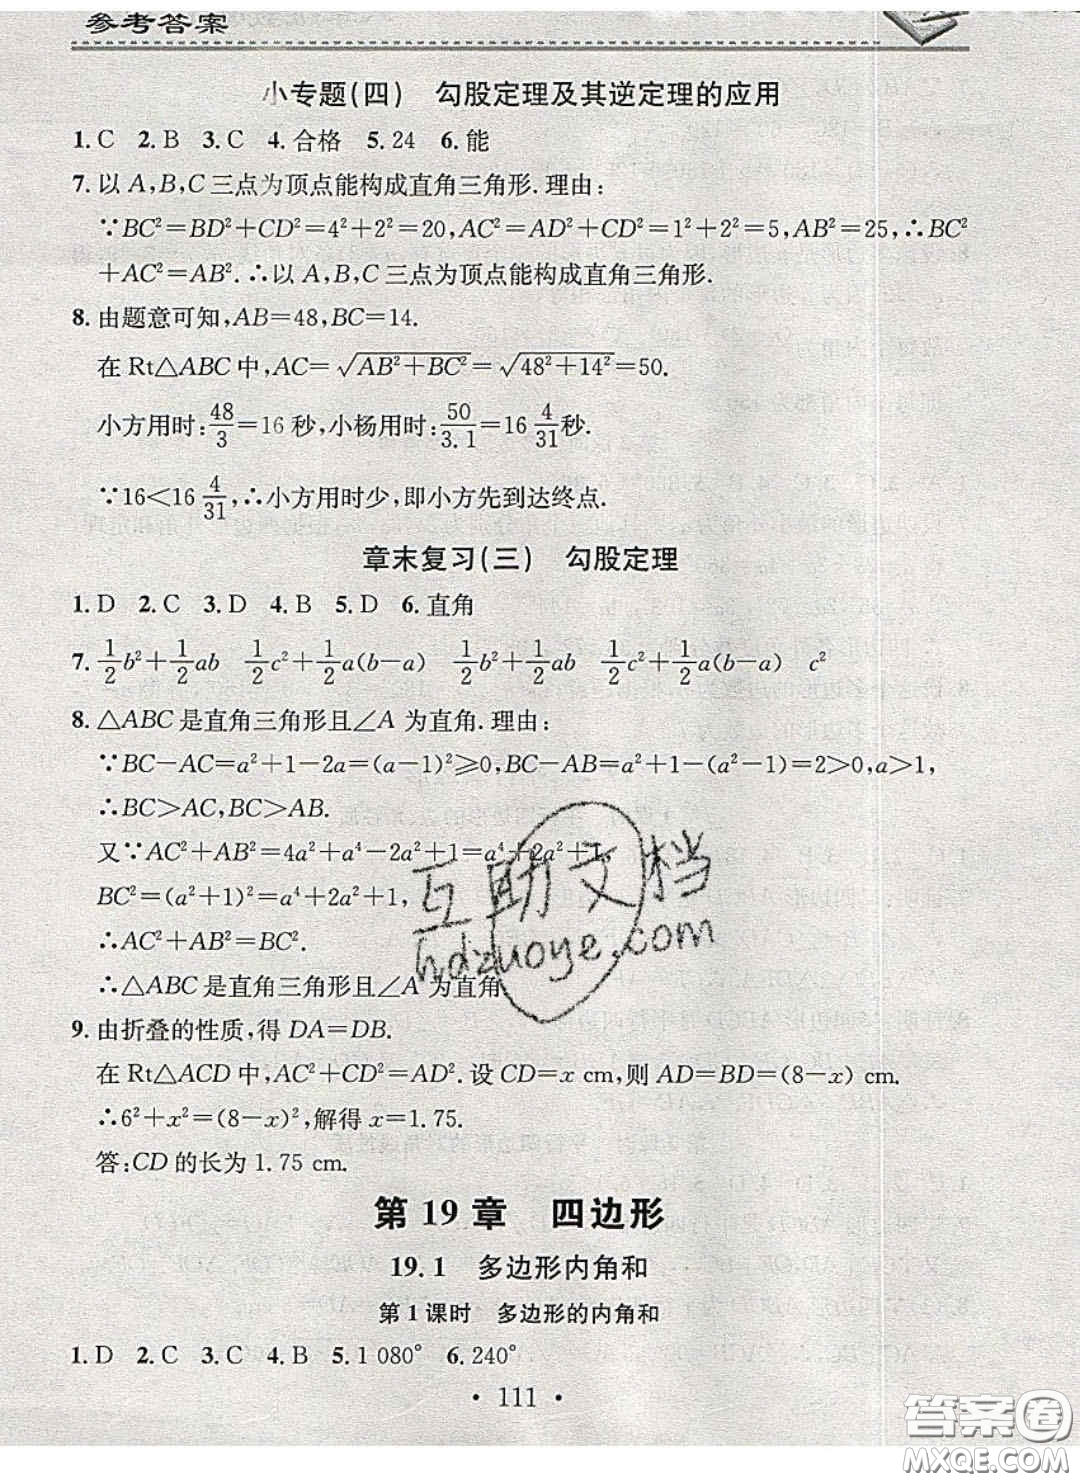 参考答案
小专题(四)　勾股定理及其逆定理的应用
1. C　2. B　3. C　4. 合格　5. 24　6. 能
7. 以 A,B,C 三点为顶点能构成直角三角形.理由:
∵BC²=BD²+CD²=4²+2²=20,AC²=AD²+CD²=1²+2²=5,AB²=25,∴BC²
+AC²=AB².∴以 A,B,C 三点为顶点能构成直角三角形.
8. 由题意可知,AB=48,BC=14.
在 Rt△ABC 中,AC=√(AB²+BC²)=√(48²+14²)=50.
小方用时:48/3=16 秒,小杨用时:50/3.1=16 4/31秒.
∵16<16 4/31,∴小方用时少,即小方先到达终点.
章末复习(三)　勾股定理
1. D　2. C　3. D　4. B　5. D　6. 直角
7. 1/2b²+1/2ab　1/2c²+1/2a(b-a)　1/2b²+1/2ab　1/2c²+1/2a(b-a)　c²
8. △ABC 是直角三角形且∠A 为直角.理由:
∵BC-AC=a²+1-2a=(a-1)²≥0,BC-AB=a²+1-(a²-1)=2>0,a>1,
∴BC>AC,BC>AB.
又∵AC²+AB²=4a²+a⁴-2a²+1=a⁴+2a²+1,
BC²=(a²+1)²=a⁴+2a²+1,
∴AC²+AB²=BC².
∴△ABC 是直角三角形且∠A 为直角
9. 由折叠的性质,得 DA=DB.
在 Rt△ACD 中,AC²+CD²=AD².设 CD=x cm,则 AD=BD=(8-x) cm.
∴6²+x²=(8-x)²,解得 x=1.75.
答:CD 的长为 1.75 cm.
第 19 章　四边形
19.1　多边形内角和
第 1 课时　多边形的内角和
1. D　2. C　3. C　4. B　5. 1 080°　6. 240°
· 111 ·
互助文档
hdzuoye.com
答案圈
MXQE.COM